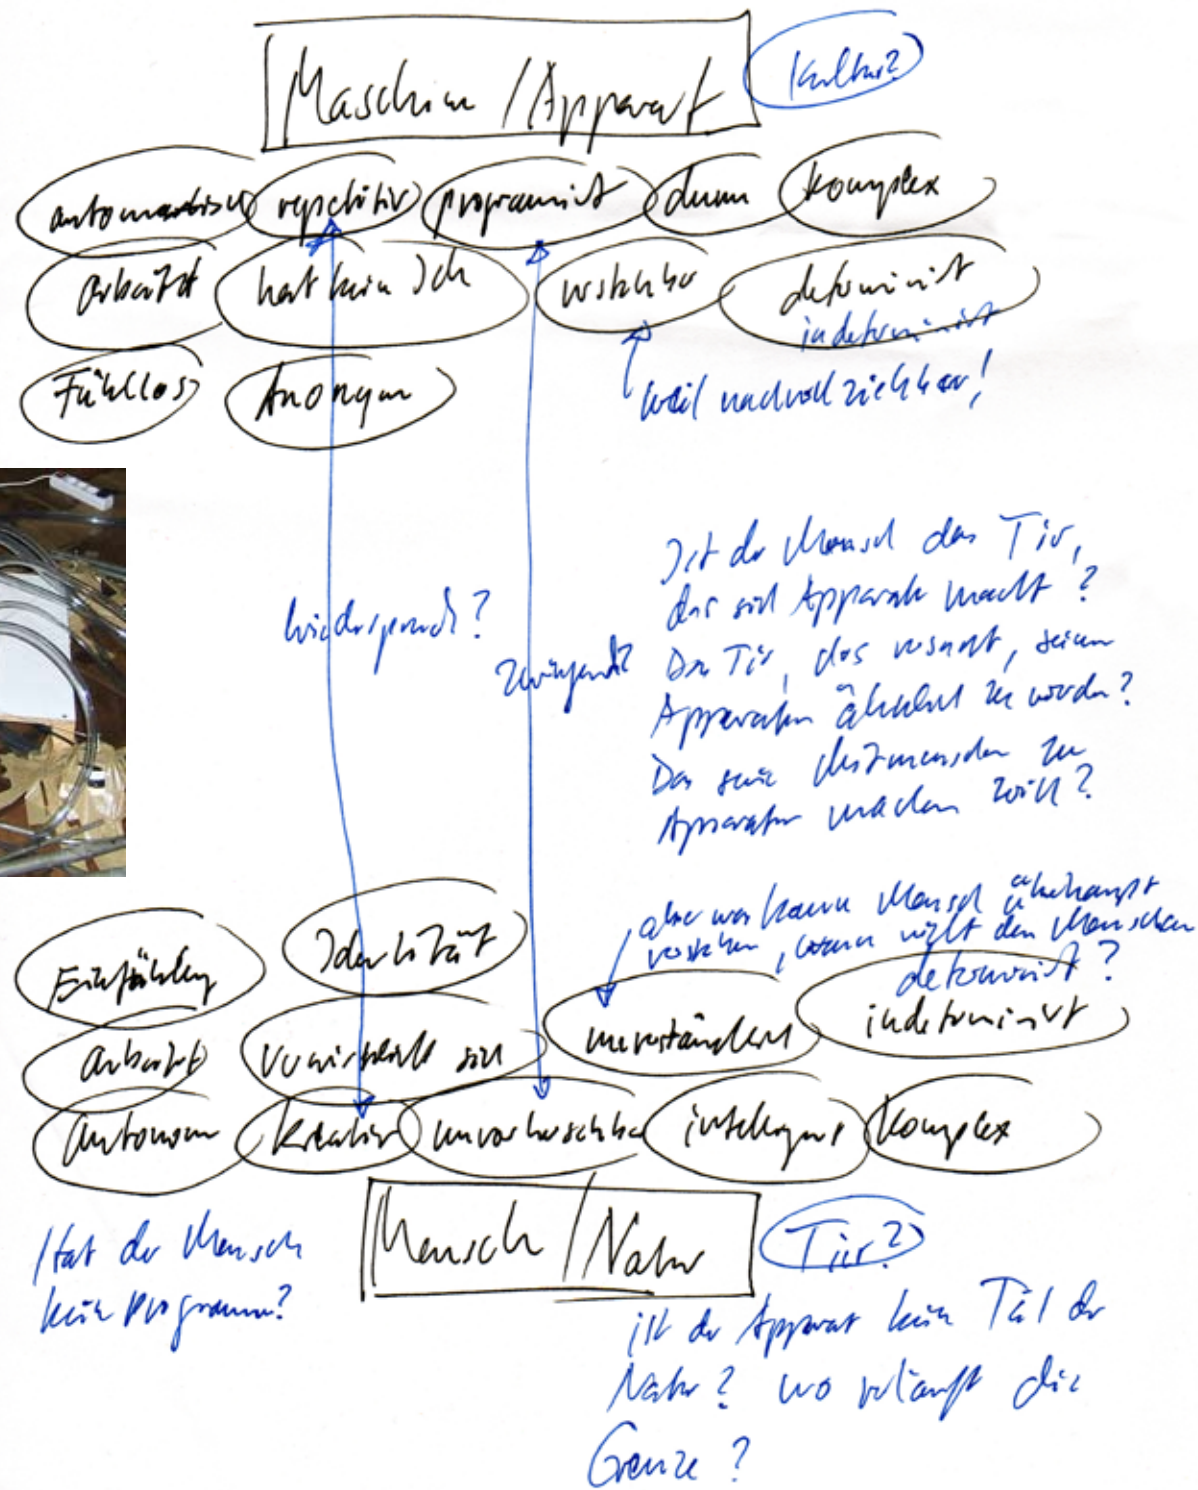 Maschine / Apparat
Kultur?
automatisch repetitiv programmiert dumm komplex
arbeitet hat kein Ich verstehbar determiniert
indeterminiert
Fühllos Anonym
weil nachvollziehbar!
Ist der Mensch das Tier,
das sich Apparate macht?
Das Tier, das versucht, seinen
Apparaten ähnlich zu werden?
Das seine Mitmenschen zu
Apparaten machen will?
Wiederspruch?
zwingend?
aber was kann Mensch überhaupt
verstehen, wenn nicht den Menschen
determiniert?
Einfühlung Identität
arbeitet verwirklicht sich unverständlich indeterminiert
autonom kreativ unvorhersehbar intelligent komplex
Mensch / Natur
Tier?
Hat der Mensch
kein Programm?
ist der Apparat kein Teil der
Natur? wo verläuft die
Grenze?